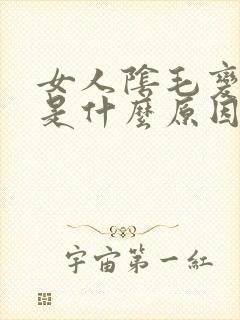 女人陰毛變
是什麼原因
宇宙第一紅